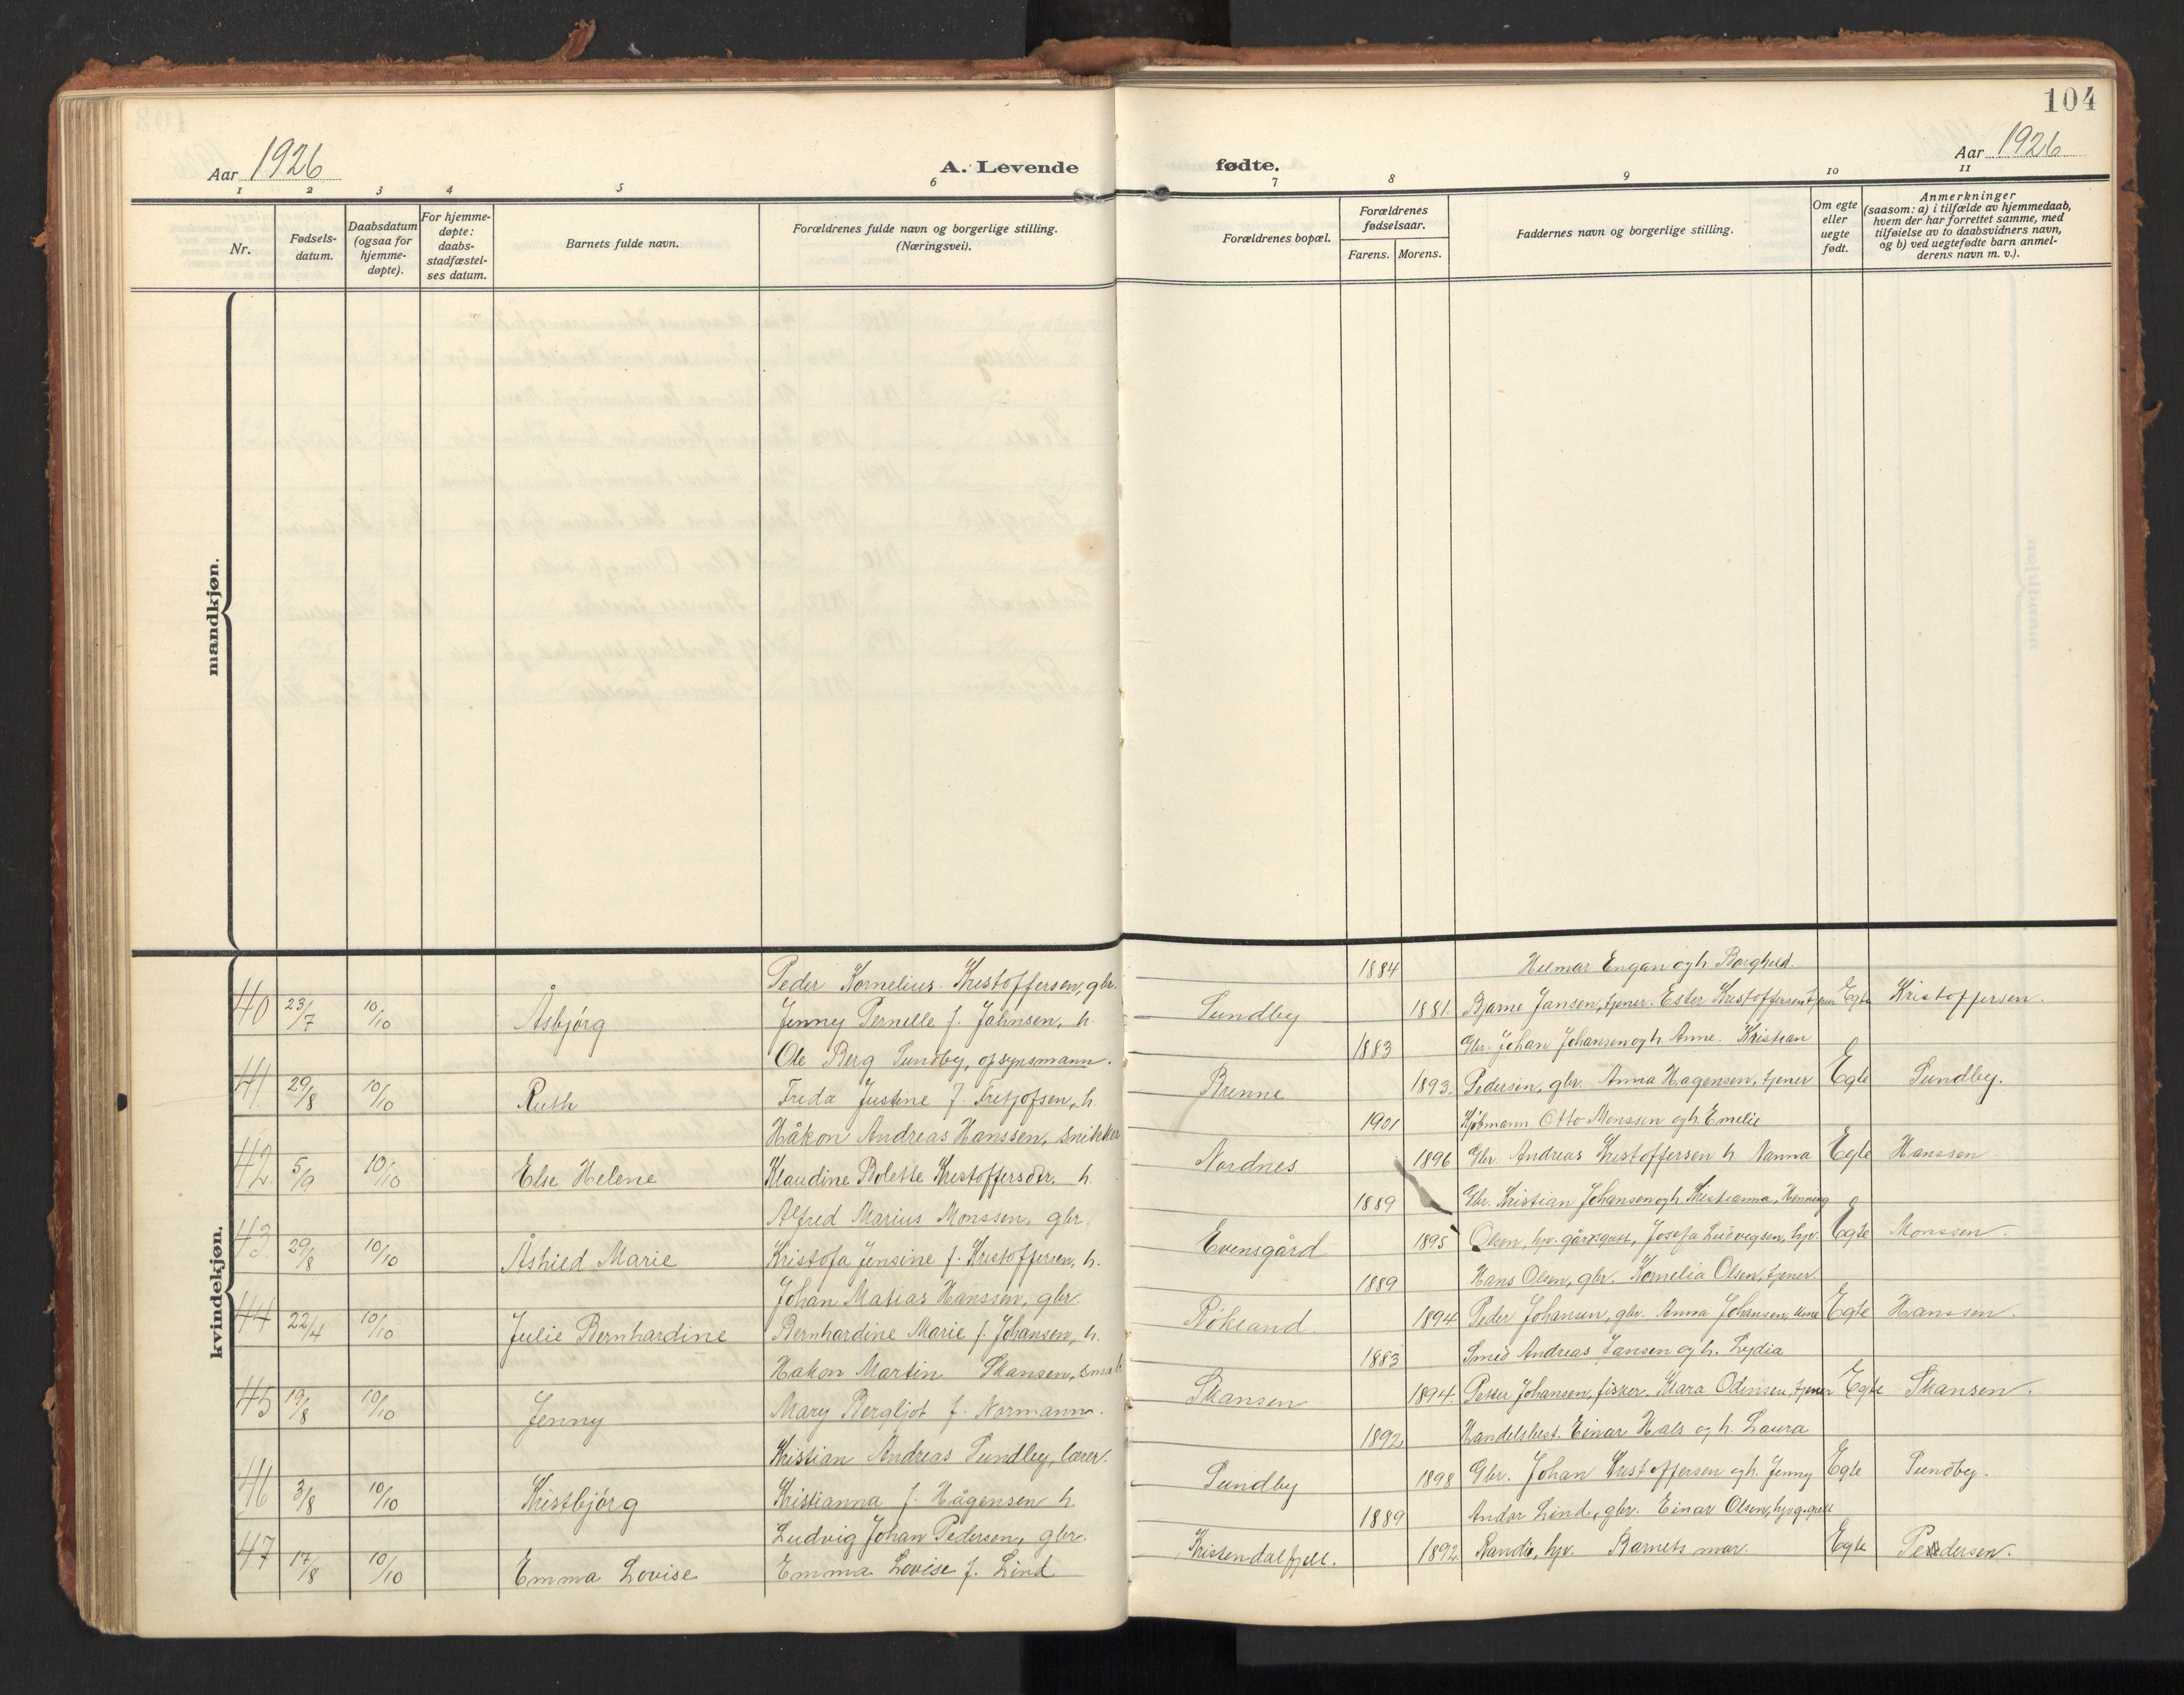 104
Aar 1926
A. Levende fødte.
Aar 1926
1 2 3 4 5 6 7 8 9 10 11
Nr.
Fødsels-
datum.
Daabsdatum
(ogsaa for
hjemme-
døpte).
For hjemme-
døpte:
daabs-
stadfæstel-
ses datum.
Barnets fulde navn.
Forældrenes fulde navn og borgerlige stilling.
(Næringsvei).
Forældrenes bopæl.
Forældrenes
fødselsaar.
Farens. Morens.
Faddernes navn og borgerlige stilling.
Om egte
eller
uegte
født.
Anmerkninger
(saasom: a) i tilfælde av hjemmedaab,
hvem der har forrettet samme, med
tilføielse av to daabsvidners navn,
og b) ved uegtefødte barn anmel-
derens navn m. v.).
mandkjøn.
kvindekjøn.
Peder Kornelius Kristoffersen, gbr. 1884 Hilmar Engan og h. Borghild.
40 23/7 10/10 Åsbjórg Jenny Pernille f. Jahnsen, h. Sundby 1881. Bjarne Jansen, tjener. Ester Kristoffersen tjener Egte Kristoffersen.
Ole Berg Sundby, opsynsmann. 1883 Gbr. Johan Johansen og h. Anne. Kristian
41. 29/8 10/10 Ruth Freda Justine f. Fritjofsen, h. Brenne 1893. Pedersen, gbr. Anna Hagensen, tjener Egte Sundby.
Håkon Andreas Hanssen, snikker 1901 Kjöbmann Otto Monssen og h. Emelie
42. 5/9 10/10 Else Helene Klaudine Bolette Kristoffersdtr. h. Nordnes 1896 Gbr. Andreas Kristoffersen h. Nanna Egte Hanssen
Alfred Marius Monssen, gbr. 1889 Gbr. Kristian Johansen og h. Kristianna, Henning
43. 29/8 10/10 Åshild Marie Kristofa Jensine f. Kristoffersen, h. Evensgård 1895 Olsen, hjv. gårdsgutt, Josefa Ludvigsen, hjv. Egte Monssen.
Johan Matias Hanssen, gbr. 1889 Hans Olsen, gbr. Kornelia Olsen, tjener.
44 22/4 10/10 Julie Bernhardine Bernhardine Marie f. Johansen, h. Rökland. 1894 Peder Johansen, gbr. Anna Johansen, Egte Hanssen.
Hakon Martin Skansen, småb. 1883 Smed Andreas Jansen og h. Lydia
45 19/8 10/10 Jenny Mary Bergljot f. Normann. Skansen 1894. Petter Johansen, fisker. Klara Odinsen, tjener Egte Skansen.
Kristian Andreas Sundby, lærer. 1892 Handelsbest. Einar Hals og h. Laura
46 3/8 10/10 Kristbjórg Kristianna f. Hågensen h. Sundby 1898 Gbr. Johan Kristoffersen og h. Jenny Egte Sundby.
Ludvig Johan Pedersen, gbr. 1889 Andor Lind, gbr. Einar Olsen, hjv. g.gutt
47 17/8 10/10 Emma Lovise Emma Lovise f. Lind Kristendalfjell. 1892. Randi, hjv. Barnets mor. Egte Pedersen.